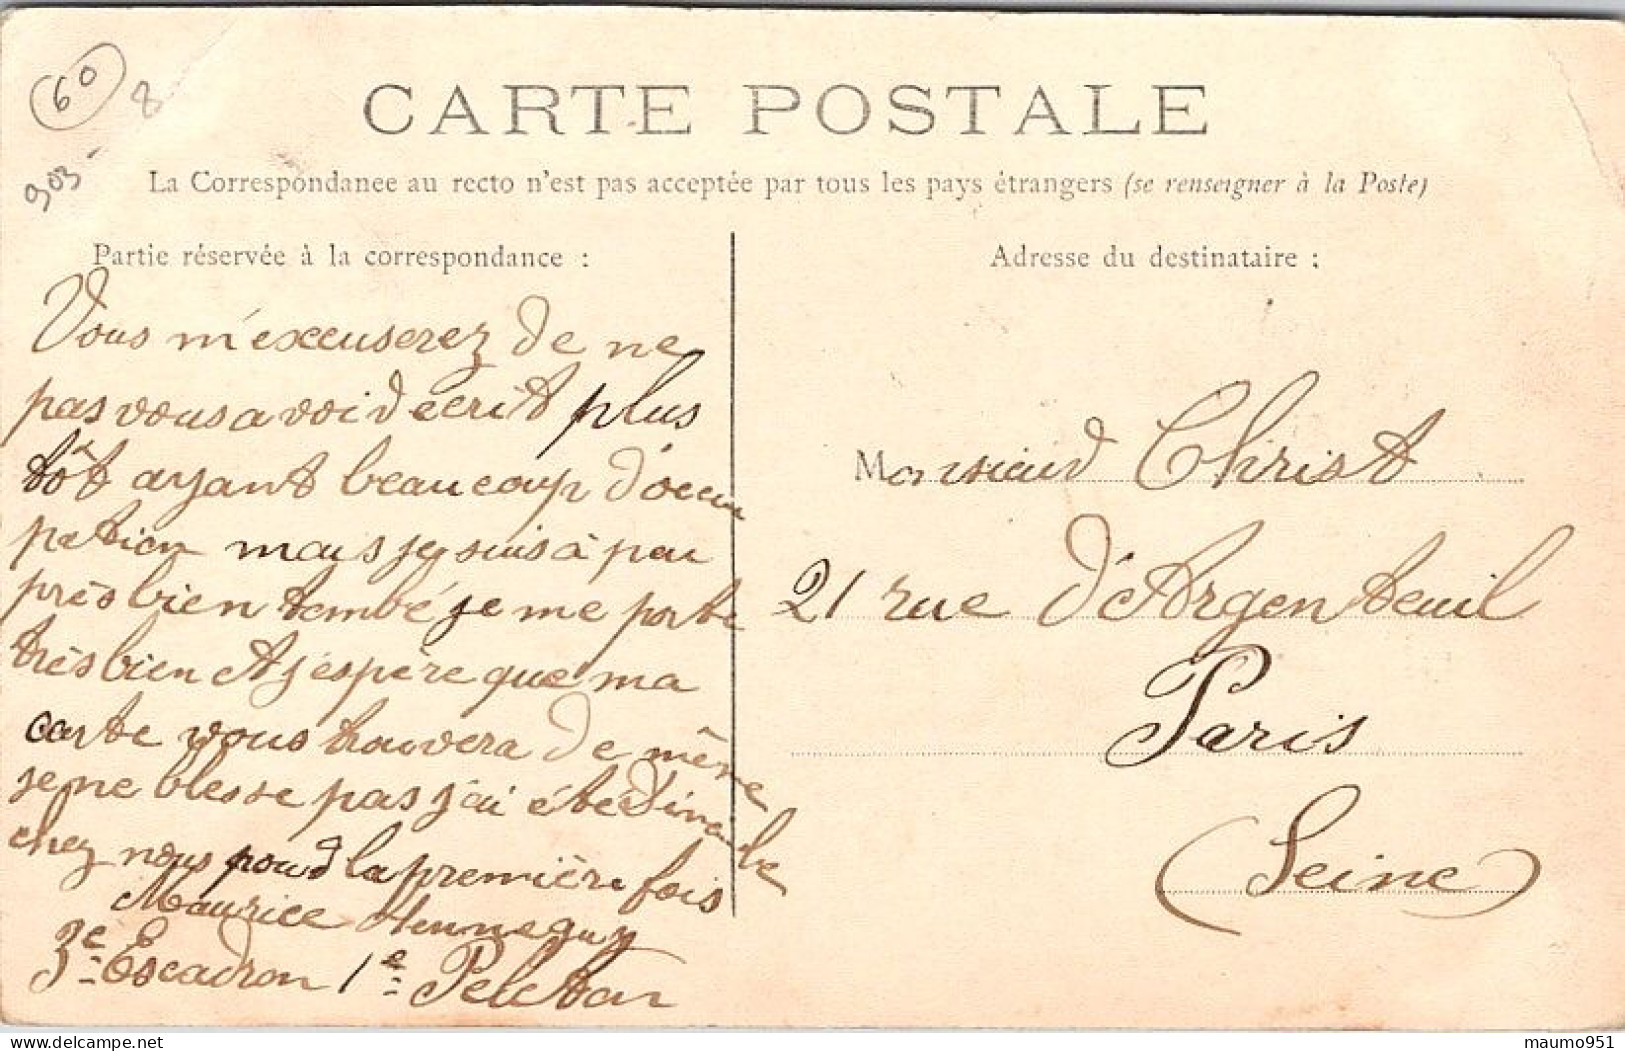 60
8
903-
CARTE POSTALE
La Correspondance au recto n'est pas acceptée par tous les pays étrangers (se renseigner à la Poste)
Partie réservée à la correspondance :
Vous m'excuserez de ne
pas vous avoir écrit plus
tôt ayant beaucoup d'occu
pation mais je suis à peu
près bien tombé je me porte
très bien et j'espère que ma
carte vous trouvera de même
je ne blesse pas j'ai été dimanche
chez nous pour la première fois
Maurice Henneguy
3e Escadron 1e Peleton
Adresse du destinataire :
Monsieur Christ
21 rue d'Argenteuil
Paris
(Seine)
delcampe.net
maumo951